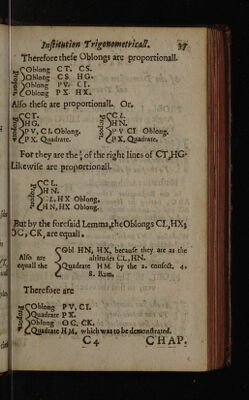 Institution Trigonometricall. 37
Therefore these Oblongs are proportionall.
Propor. Oblong CT. CS.
Oblong CS HG.
Oblong PV. CI.
Oblong PX HX.
Also these are proportionall. Or,
Propor. CT. Propor. CL.
HG. HN.
PV, CI, Oblong. PV CI Oblong.
PX, Quadrate. PX. Quadrate.
For they are the ½ of the right lines of CT, HG.
Likewise are proportionall.
Propor. CL.
HN.
CL, HX Oblong.
HN, HX Oblong.
But by the foresaid Lemma, the Oblongs CI, HX;
OC, CK, are equall.
Obl HN, HX, because they are as the
Also are altitudes CL, HN.
equall the Quadrate HM by the 2. consect. 4.
8. Ram.
Therefore are
Propor. Oblong PV, CI.
Quadrate PX.
Oblong OC, CK.
Quadrate HM, which was to be demonstrated.
C4 CHAP.